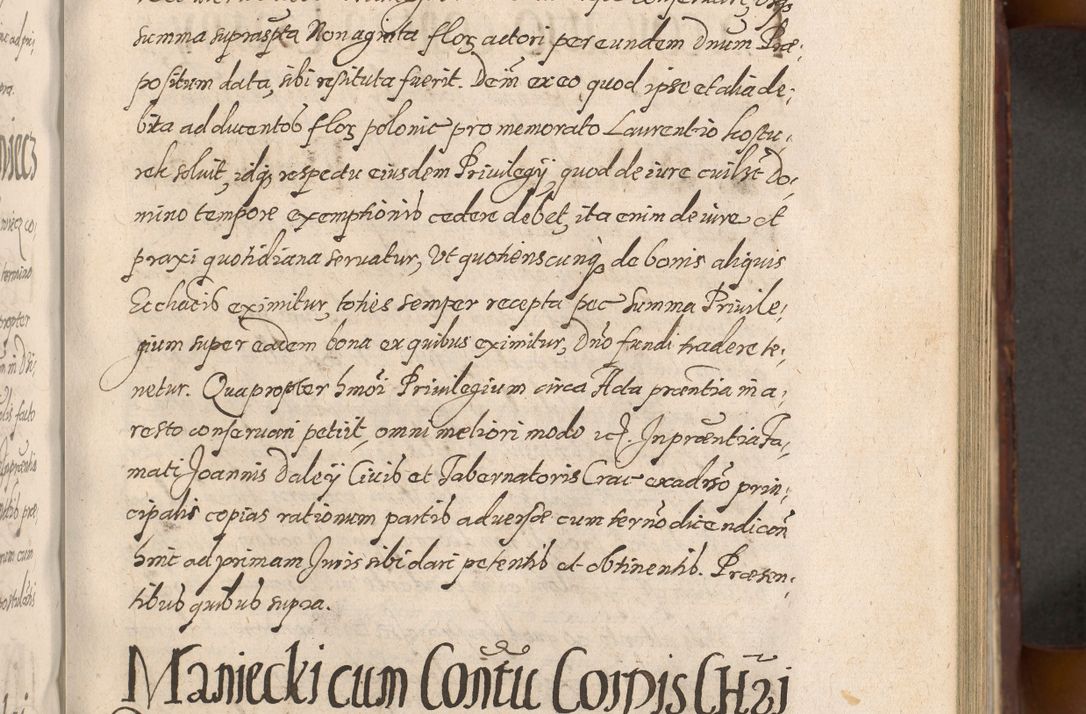 summa suprasp̃ta Nonaginta florʒ actori per eundem Dnum Præ-
positum data, sibi restituta fuerit. Dem̃ ex eo quod ipse et alia de-
bita ad ducentos florʒ polonic pro memorato Laurentio kostu-
rek soluit, idqʒ respectu eiusdem Priuilegÿ, quod de iure ciuili Do-
mino tempore exemptionis cedere debet, ita enim de iure et
praxi quotidiana seruatur, Vt quotienscunq̀ de bonis aliquis
eximitur, toties semper recepta pec summa Priuile-
gium super eadem bona ex quibus eximitur, Dño fundi tradere te-
netur. Quapropter hmõi Priuilegium circa Acta præntia in a-
resto conseruari petiit, omni meliori modo. In præntia Fa-
mati Joannis Daleÿ Ciuis et Tabernatoris Crac ex aduso prin-
cipalis copias rationum partis aduersæ cum terño dicendi con
hinc ad primam Juris sibi dari petentis et obtinentis. Præsen-
tibus quibus supra.
Maniecki cum Conũtu Corpis CHri